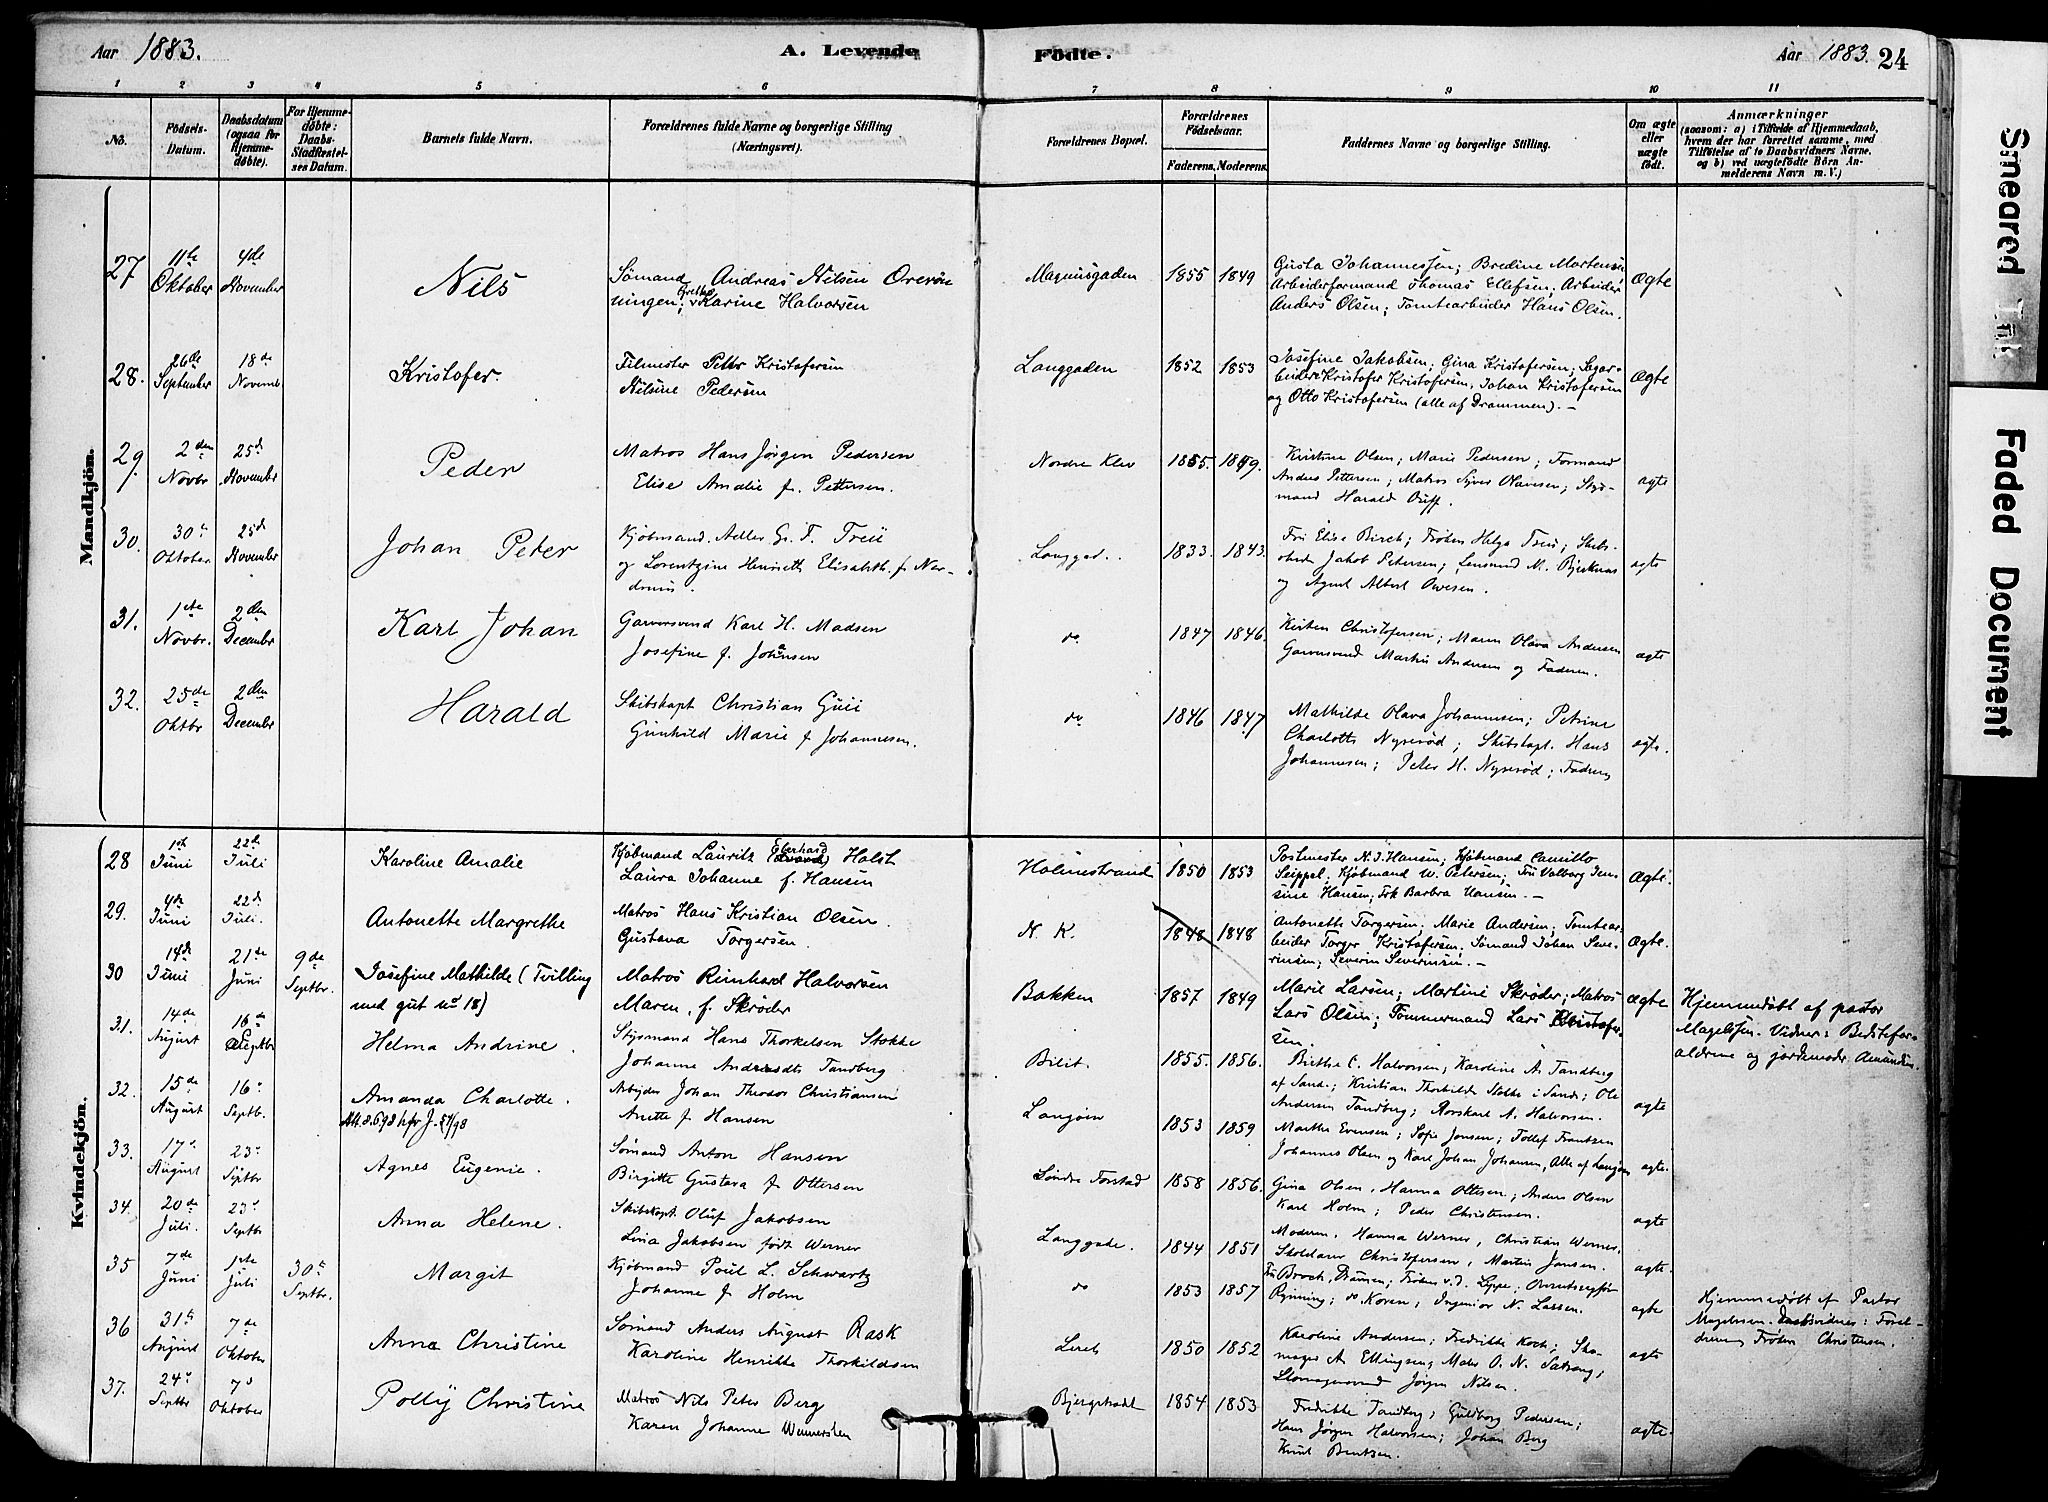 Aar 1883.
A. Levende Födte.
Aar 1883. 24
1 2 3 4 5 6 7 8 9 10 11
No.
Födsels-Datum.
Daabsdatum (ogsaa for Hjemme-döbte).
For Hjemme-döbte: Daabs-Stadfæstel-ses Datum.
Barnets fulde Navn.
Forældrenes fulde Navne og borgerlige Stilling (Næringsvei).
Forældrenes Bopæl.
Forældrenes Födselsaar.
Faderens. Moderens.
Faddernes Navne og borgerlige Stilling.
Om ægte eller uægte födt.
Anmærkninger
(saasom: a) i Tilfælde af Hjemmedaab,
hvem der har forrettet samme, med
Tilföielse af to Daabsvidners Navne,
og b) ved uægtefödte Börn An-
melderens Navn m. V.)
Mandkjön.
27 11te Oktober 4de November
Nils
Sømand Andreas Nilsen Orerön
ningen; Grethe Karine Halvorsen
Magnusgaden 1855 1849
Gusta Johannessen; Bredine Mortensen
Arbeiderformand Thomas Ellefsen; Arbeider
Anders Olsen; Tomtearbeider Hans Olsen.
Ægte
28. 26de September 18de Novemb.
Kristofer.
Filmester Peter Kristofersen
Nilsine Pedersen
Langgaden 1852 1853
Josefine Jakobsen; Gina Kristofersen; Sagar-
beider Kristofer Kristofersen, Johan Kristofersen
og Otto Kristofersen (alle af Drammen). —
Ægte
29. 2den Novbr 25d November
Peder
Matros Hans Jørgen Pedersen
Elise Amalie f. Pettersen.
Nordre Klev 1855. 1849.
Kirstine Olsen; Marie Pedersen; Formand
Anders Pettersen; Matros Syver Olavesen; Styr-
mand Harald Ouff.
ægte
30. 30te Oktober 25d November
Johan Peter
Kjøbmand. Aeller Gr. F. Treü
og Lorentzine Henriette Elisabeth f. Nar-
Langgad. 1833. 1843.
Fru Elise Birch; Frøken Helga Treü; Skibs-
rheder Jakob Petersen; Lensmand M. Bjerknæs
og Agent Albert Owesen.
ægte
31. 1ste Novbr. 2den December
Karl Johan
Garversvend Karl H. Madsen
Josefine f. Johansen
do 1847 1846.
Kirsten Christofersen; Maren Olava Andersen
Garversvend Martin Andersen og Faderen.
ægte
32. 25de Oktbr 2den December
Harald
Skibskapt Christian Güii
Gunhild Marie f Johannesen.
do 1846 1847
Mathilde Olava Johannesen; Petrine
Charlotte Nyserød; Skibskapt. Hans
Johannesen; Peter H. Nyserød; Fadren
ægte.
Kvindekjön.
28 1ste Juni 22de Juli
Karoline Amalie
Kjøbmand Lauritz Eberhard Holst
Laura Johanne f. Hansen
Holmestrand 1850 1853
Postmester N. J. Hansen; Kjøbmand Camillo
Seippel; Kjøbmand W. Petersen; Fru Valborg Jen-
sine Hansen; Frk Barbra Hansen. —
Ægte.
29. 4de Juni 22de Juli.
Antonette Margrethe
Matros Hans Kristian Olsen
Gustava Torgersen.
N. K. 1848 1848
Antonette Torgersen; Marie Andersen; Tomtear-
beider Torger Kristofersen; Sømand Johan Seve-
rinsen; Severin Severinsen. —
Ægte.
30 14de Juni 21de Juni 9de Septbr.
Josefine Mathilde (Tvilling
med gut no 18)
Matros Reinhard Halvorsen
Maren, f. Skrøder
Bakken 1857 1849
Marie Larsen; Martine Skrøder; Matros
Lars Olsen; Tømmermand Lars Kristofer-
sen.
Ægte
Hjemmedøbt af pastor
Magelssen. Vidner: Bedstefor-
ældrene og jordemoder Amundsen.
31. 14de August 16de Septbr
Helma Andrine.
Styrmand Hans Thorkelsen Stokke
Johanne Andersdtr Tandberg
Bilit. 1855. 1856.
Birthe C. Halvorsen; Karoline A. Tandberg
af Sande; Kristian Thorkilds Stokke i Sande; Ole
Andersen Tandberg; Rorskarl A. Halvorsen.
ægte
32. 15de August 16de Septbr.
Amanda Charlotte.
Att. 8.6.98 kfr J. 57/98
Arbejder Johan Theodor Christiansen
Anette f Hansen
Langøen 1853 1859.
Marthe Evensen; Sofie Jonsen; Tollef Frantzen
Johannes Olsen og Karl Johan Johansen, Alle af Langøen
ægte.
33. 17de August 23de Septbr
Agnes Eugenie.
Sømand Anton Hansen
Birgitte Gustava f Ottersen
Søndre Torstad 1858 1856.
Gina Olsen, Hanna Ottesen; Anders Olsen
Karl Holm; Peder Christensen.
ægte
34. 20de Juli. 23de Septbr
Anna Helene.
Skibskapt. Oluf Jakobsen
Lina Jakobsen født Werner
Langgade. 1844 1851
Moderen. Hanna Werner, Christian Werner,
Christofersen, Martin Jansen.
ægte.
35 7de Juni 1ste Juli 30te Septbr.
Margit
Kjøbmand Poul L. Schwartz
Johanne f Holm
do 1853 1857
Fru Broch, Frøken v. d. Lippe;
Rynning; do Koren; Ingeniør N. Lassen.
ægte
Hjemmedøbt af Pastor
Magelssen. Daabsvidner: Forel-
drene, Frøken Christensen.
36 31te August 7de Oktober
Anna Christine
Sømand Anders August Rask
Karoline Henrikke Thorkildsen
Leret 1850 1852
Karoline Andersen; Fredrikke Koch; Sko-
mager A. Ellingsen; Maler O. N. Satrang;
Jørgen Nilsen.
ægte
37. 24de Septbr 7de Oktober
Polly Christine
Matros Nils Peter Berg
Karen Johanne Wennersten
Bjergstradt 1854 1853
Fredrikke Tandberg; Guldborg Pedersen;
Hans Jørgen Halvorsen; Johan Berg
Knut Bentzen.
ægte.
Smeared Ink
Faded Document